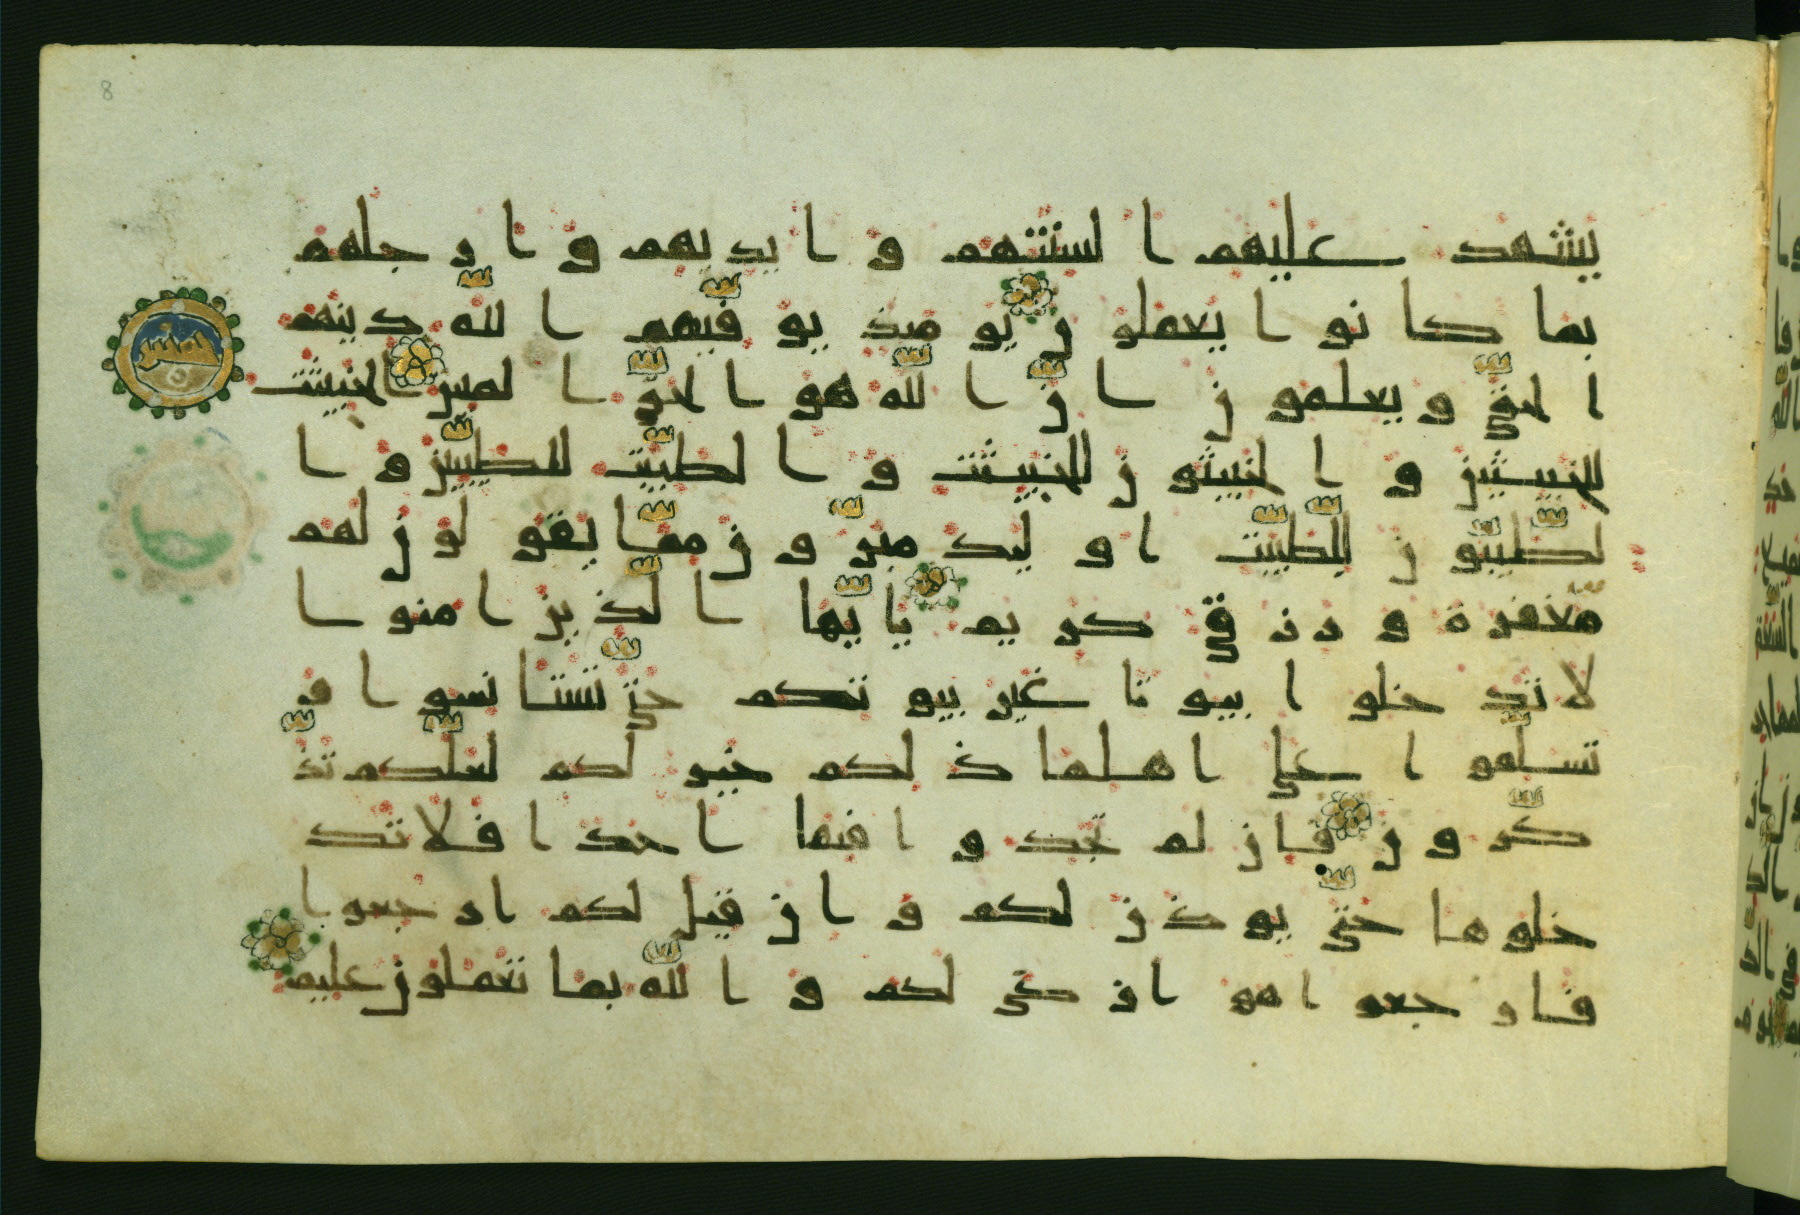 8
يشهد عليهم السنتهم وايديهم وارجلهم
بما كانوا يعملون يومئذ يوفيهم الله دينهم
الحق ويعلمون ان الله هو الحق المبين الخبيثت
للخبيثين والخبيثون للخبيثت والطيبت للطيبين وا
لطيبون للطيبت اوليك مبرون مما يقولون لهم
مغفرة ورزق كريم يايها الذين امنوا
لا تدخلوا بيوتا غير بيوتكم حتى تستانسوا و
تسلموا على اهلها ذلكم خير لكم لعلكم تذ
كرون فان لم تجدوا فيها احدا فلا تد
خلوها حتى يوذن لكم وان قيل لكم ارجعوا
فارجعوا هو ازكى لكم والله بما تعملون عليم